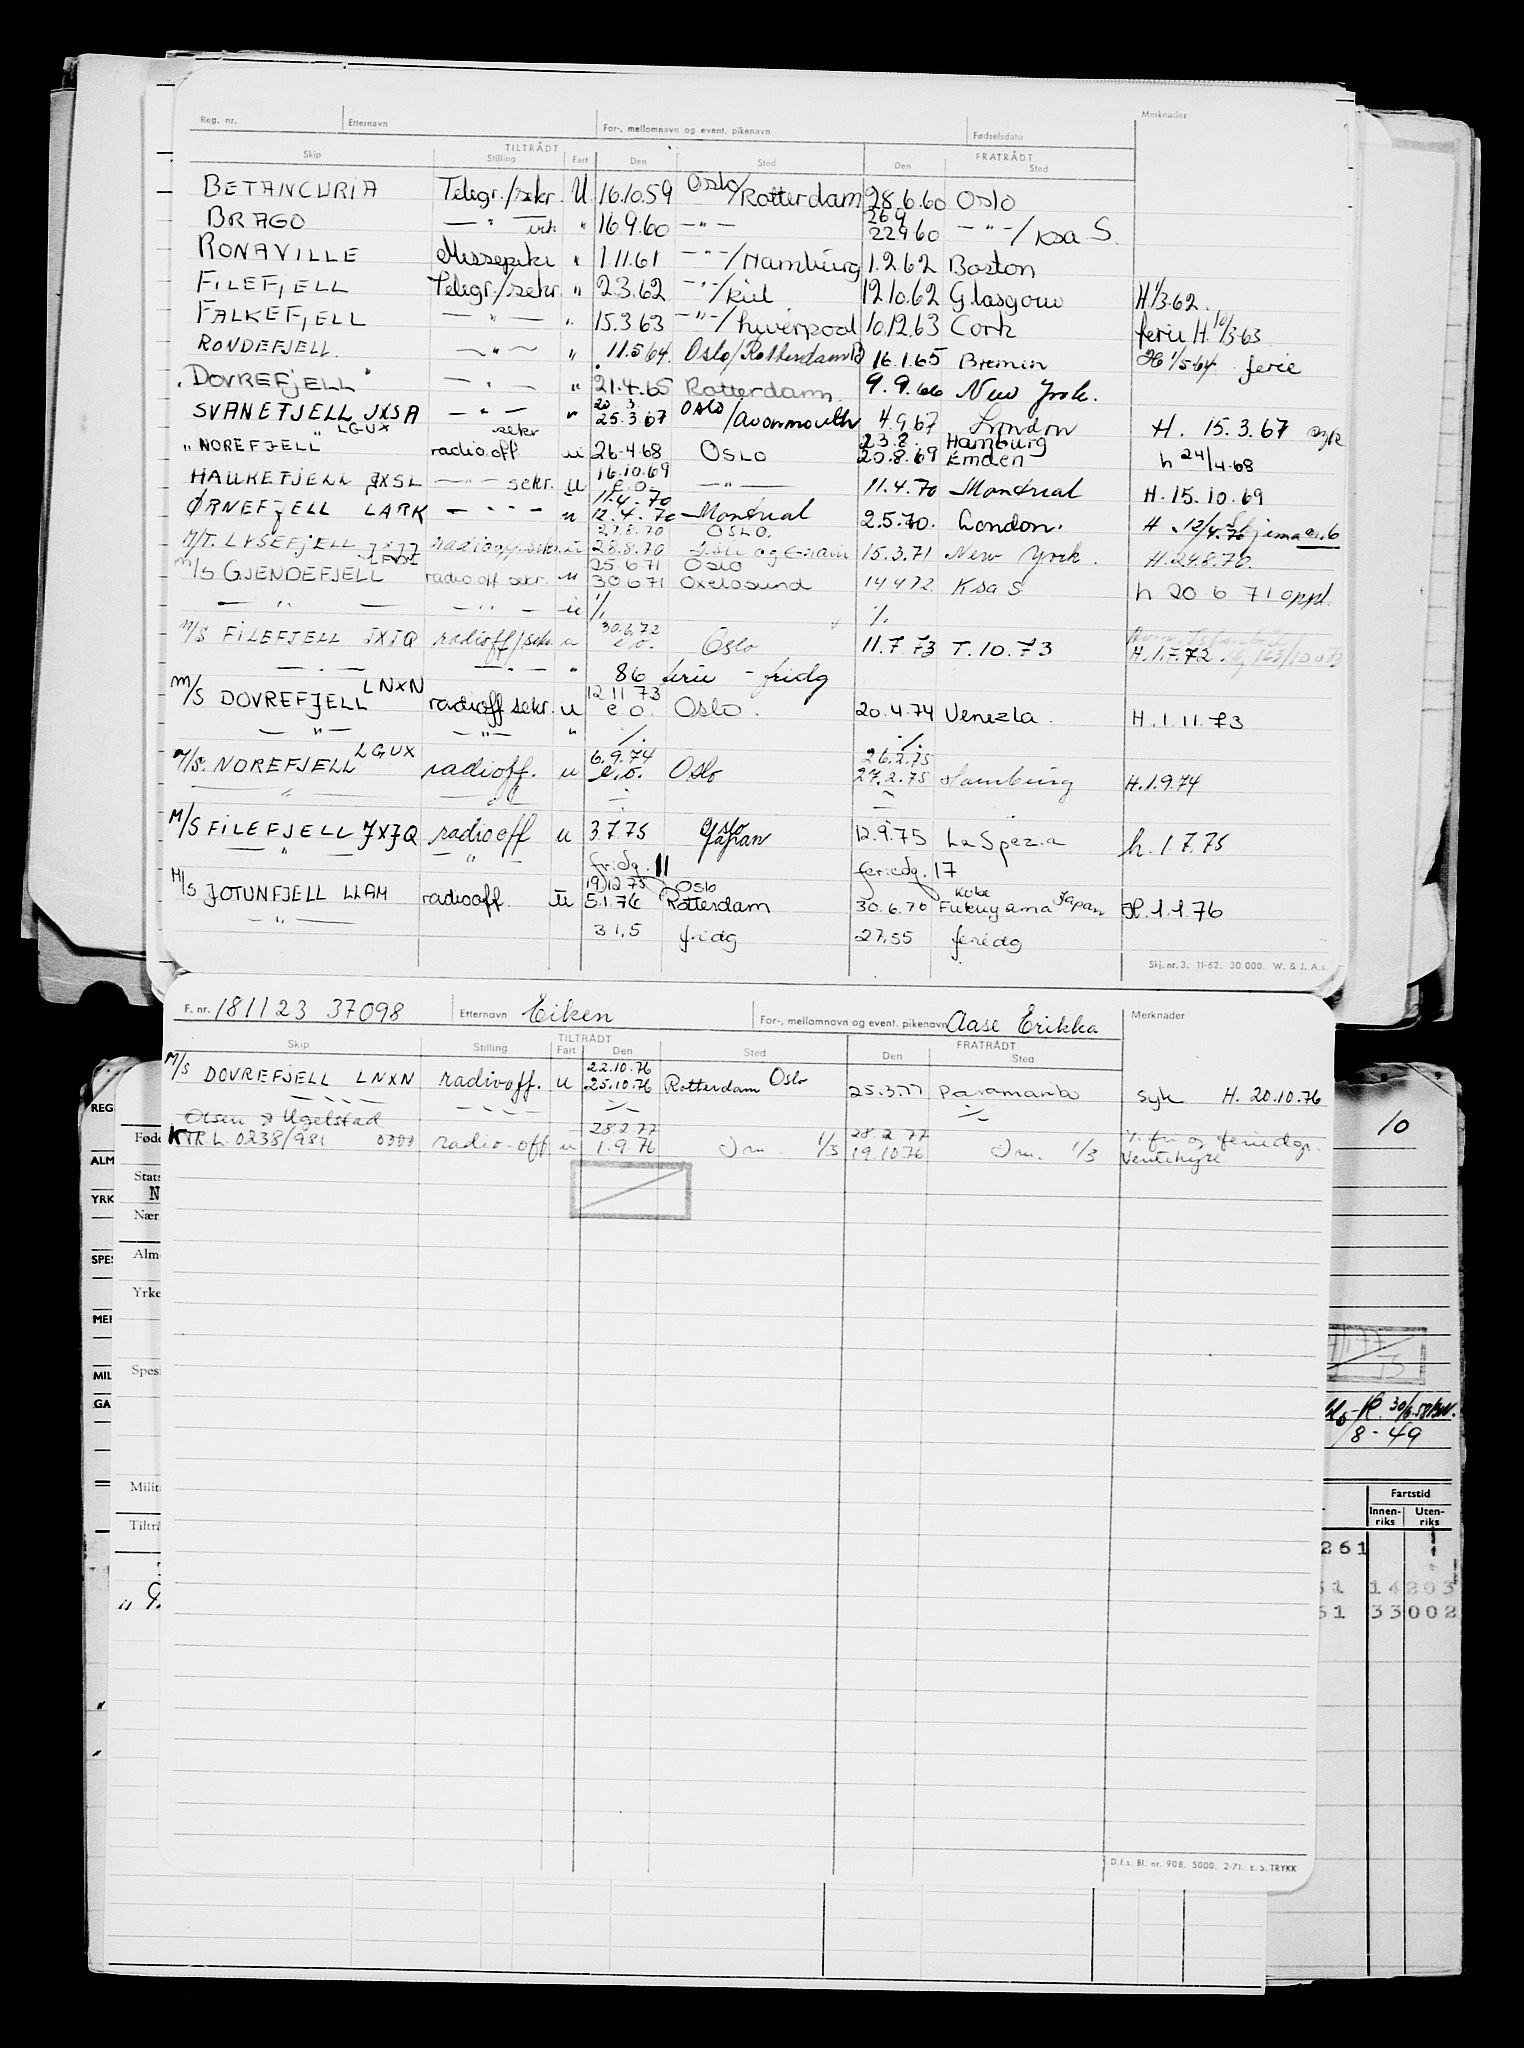 Reg. nr. Etternavn For-, mellomnavn og event. pikenavn Fødselsdato Merknader
TILTRÅDT FRATRÅDT
Skip Stilling Fart Den Sted Den Sted
BETANCURIA Telegr./sekr. U 16.10.59 Oslo/Rotterdam 28.6.60 Oslo
26.9
BRAGO — " — " 16.9.60 — " — 22.9.60 — " — / Ksa S.
RONAVILLE Messepike " 1.11.61 — " — /Hamburg 1.2.62 Boston
FILEFJELL Telegr./sekr. " 2.3.62 — " — /Kiel 12.10.62 Glasgow H 1/3-62.
FALKEFJELL — " — " 15.3.63 — " — /Liverpool 10.12.63 Cork ferie H. 10/3-63
RONDEFJELL. — " — " 11.5.64. Oslo/Rotterdam 16.1.65 Bremen H 1/5-64. ferie
DOVREFJELL — " — " 21.4.65 Rotterdam. 9.9.66 New York.
20 3
SVANEFJELL JXSA — " — " 25.3.67 Oslo/Avonmouth 4.9.67 London H. 15.3.67
LGUX sekr 23.8. Hamburg
" NOREFJELL " radiooff u 26.4.68 OSLO 20.8.69 Emden h 24/4-68
16.10.69
HAUKEFJELL JXSL — " — sekr. U e.o. — " — 11.4.70 Montreal H. 15.10.69
11.4.70
ØRNEFJELL LARK — " — u 12.4.70 Montreal 2.5.70. London. H. 12/4.70 Skjema
27.8.70 OSLO.
M/T. LYSEFJELL radiooff.sekr. u 28.8.70 15.3.71 New York. H. 24.8.70.
25 6 71 Oslo
M/S GJENDEFJELL radiooff sekr. u 30 6 71 Oxelosund 14 4 72 Ksa S h 20 6 71 oppl.
— " — — " — u % %
30.6.72
M/S FILEFJELL JXJQ radioff/sekr. u e.o. Oslo 11.7.73 T. 10.73 H. 1.7.72.
— " — — " — " 86 ferie - fridg
LNXN 12 11 73
M/S DOVREFJELL radiooff sekr. u e.o. Oslo. 20.4.74 Venezla. H. 1.11.73
— " — — " — " %
LGUX 6.9.74 26.2.75
M/S. NOREFJELL radiooff. u e.o. Oslo 27.2.75 Hamburg H. 1.9.74
— " — — " —
Oslo
M/S FILEFJELL JXJQ radiooff u 3.7.75 Japan 12.9.75 La Spezia h. 1 7.75
— " — — " — fridg. 11 feriedg. 17
19.12.75 Oslo Kobe
M/S JOTUNFJELL LLAM radiooff. u 5.1.76 Rotterdam 30.6.76 Fukuyama Japan H. 1.1.76
— " — 31,5 fridg 27,55 feriedg
Skj. nr. 3. 11-62. 30 000. W. & J. A.s.
F. nr. 181123 37098 Etternavn Eiken For-, mellomnavn og event. pikenavn Aase Erikka Merknader
TILTRÅDT FRATRÅDT
Skip Stilling Fart Den Sted Den Sted
22.10.76
M/S DOVREFJELL LNXN radiooff. u 25.10.76 Rotterdam Oslo 25.3.77 Paramaribo syk H. 20.10.76
Olsen & Ugelstad 28.2.77 28.2.77 % fri og feriedgr.
KTR.L. 0238/981 radio-off u 1.9.76 1/3 19.10.76 1/3 Ventehyre
D.f.s. Bl. nr. 908. 5000. 2-71. E. S. TRYKK
REG
Føde
ALM
Stats
YRK
N
Nær
SPES
Alm
Yrke
MER
Spes
MIL
GA
Milit
Tiltr
10
8 - 49
Fartstid
Innenriks Utenriks
261
51 14203
51 33002